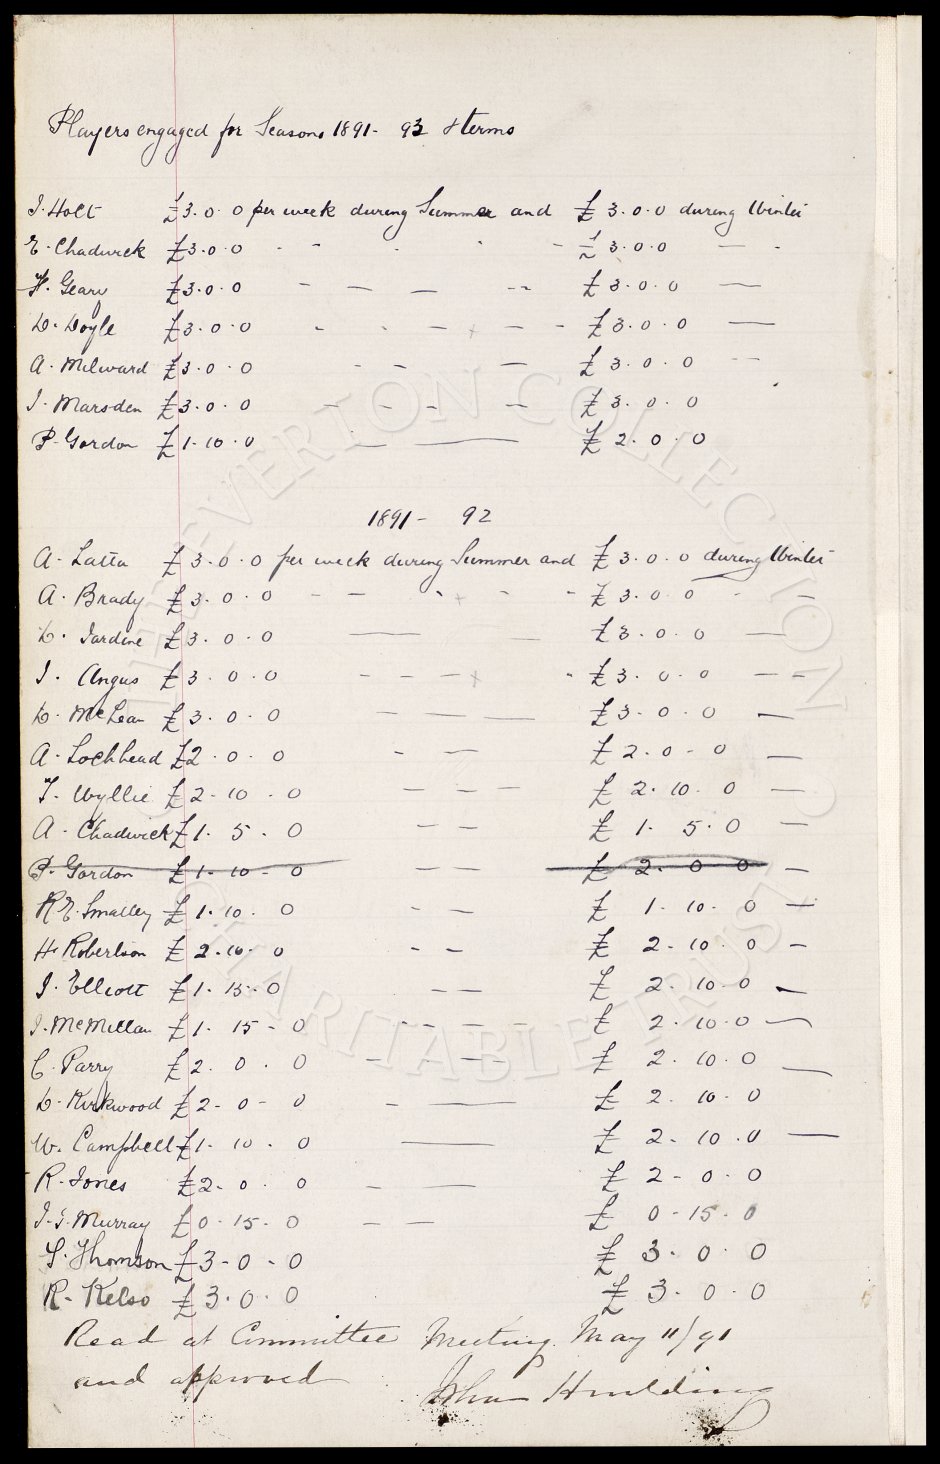 Players engaged for Seasons 1891 - 93 & terms
J. Holt £3.0.0 per week during Summer and £3.0.0 during Winter
E. Chadwick £3.0.0 - - - - - £3.0.0 - -
F. Geary £3.0.0 - - - - £3.0.0 -
D. Doyle £3.0.0 - - - + - - £3.0.0 -
A. Milward £3.0.0 - - - £3.0.0 - -
J. Marsden £3.0.0 - - - - £3.0.0
P. Gordon £1.10.0 - - £2.0.0
1891 - 92
A. Latta £3.0.0 per week during Summer and £3.0.0 during Winter
A. Brady £3.0.0 - - - + - - £3.0.0 - -
D. Jardine £3.0.0 - - £3.0.0 -
J. Angus £3.0.0 - - - + - £3.0.0 - -
D. McLean £3.0.0 - - - £3.0.0 -
A. Lochhead £2.0.0 - - £2.0-0 -
T. Wyllie £2-10-0 - - - £2.10.0 -
A. Chadwick £1.5.0 - - £1.5.0 -
P. Gordon £1-10-0 - - £2.0.0 -
R.E. Smalley £1.10.0 - - £1-10-0 -
H. Robertson £2.10-0 - - £2-10.0 -
J. Elliott £1-15-0 - - £2.10-0 -
J. McMillan £1.15-0 - - - £2.10.0 -
C. Parry £2.0.0 - - - £2.10.0 -
D. Kirkwood £2-0-0 - - £2.10-0
W. Campbell £1-10.0 - £2-10.0 -
R. Jones £2-0.0 - - £2-0-0
J.J. Murray £0-15-0 - - £0-15-0
S. Thomson £3-0-0 £3.0.0
R. Kelso £3.0.0 £3.0.0
Read at Committee Meeting. May 11/91
and approved John Houlding
EVERTON COLLECTION CHARITABLE TRUST